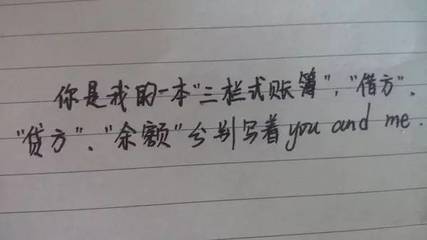 你是我的一本"三栏式账簿"，"借方"、
"贷方"、"余额"分别写着you and me.